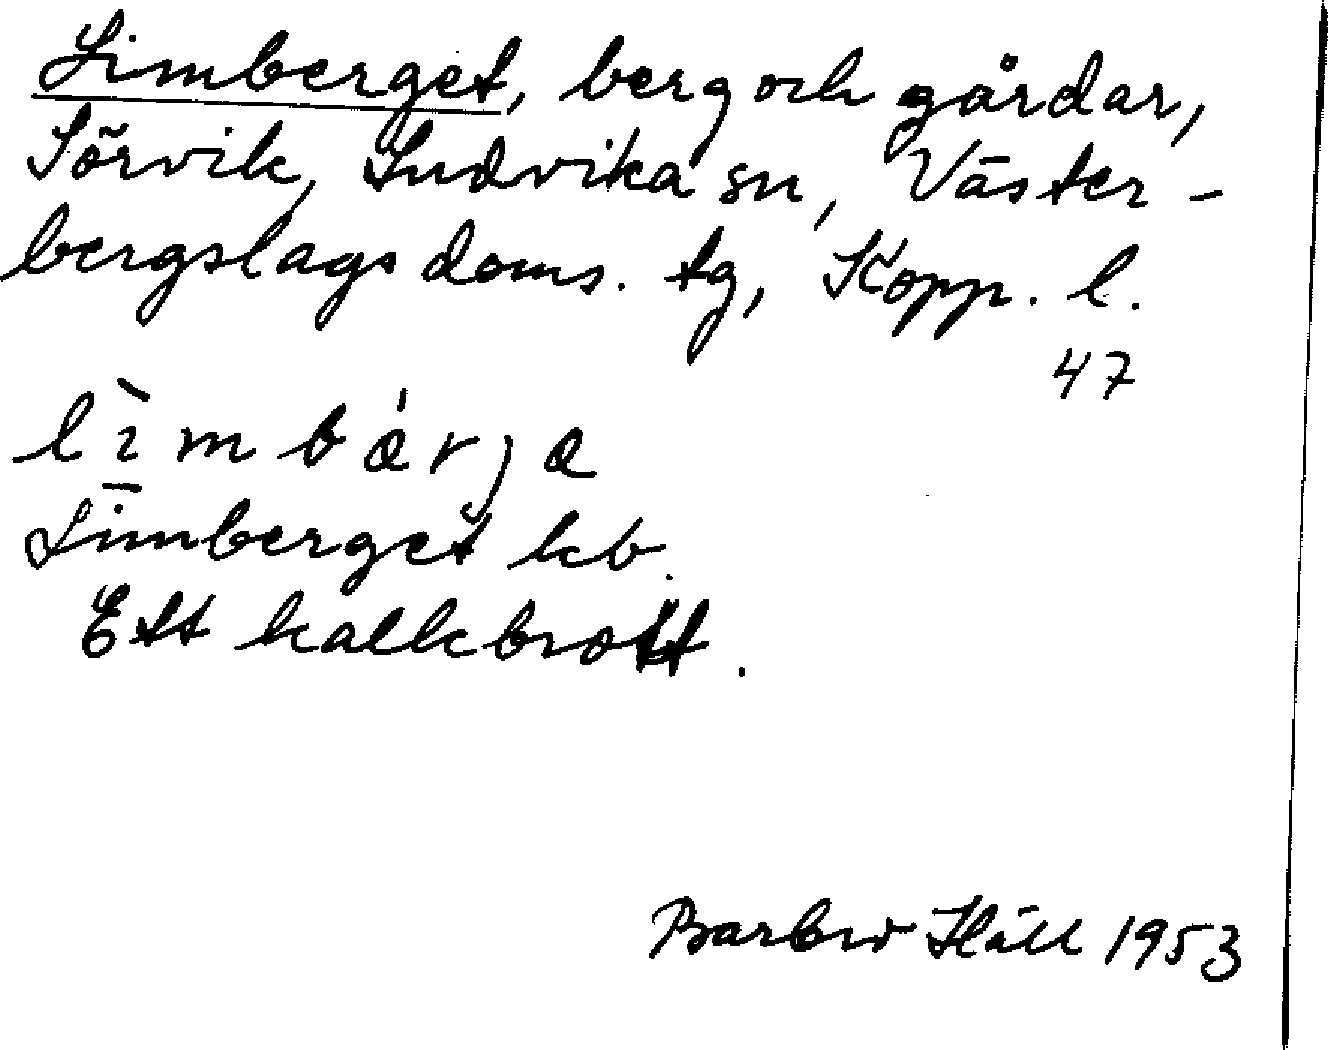 Limberget, berg och gårdar,
Sörvik, Ludvika sn, Väster-
bergslags doms. tg, Kopp. l.
47
lìmbárja
Limberget kb.
Ett kalkbrott.
Barbro Häll 1953